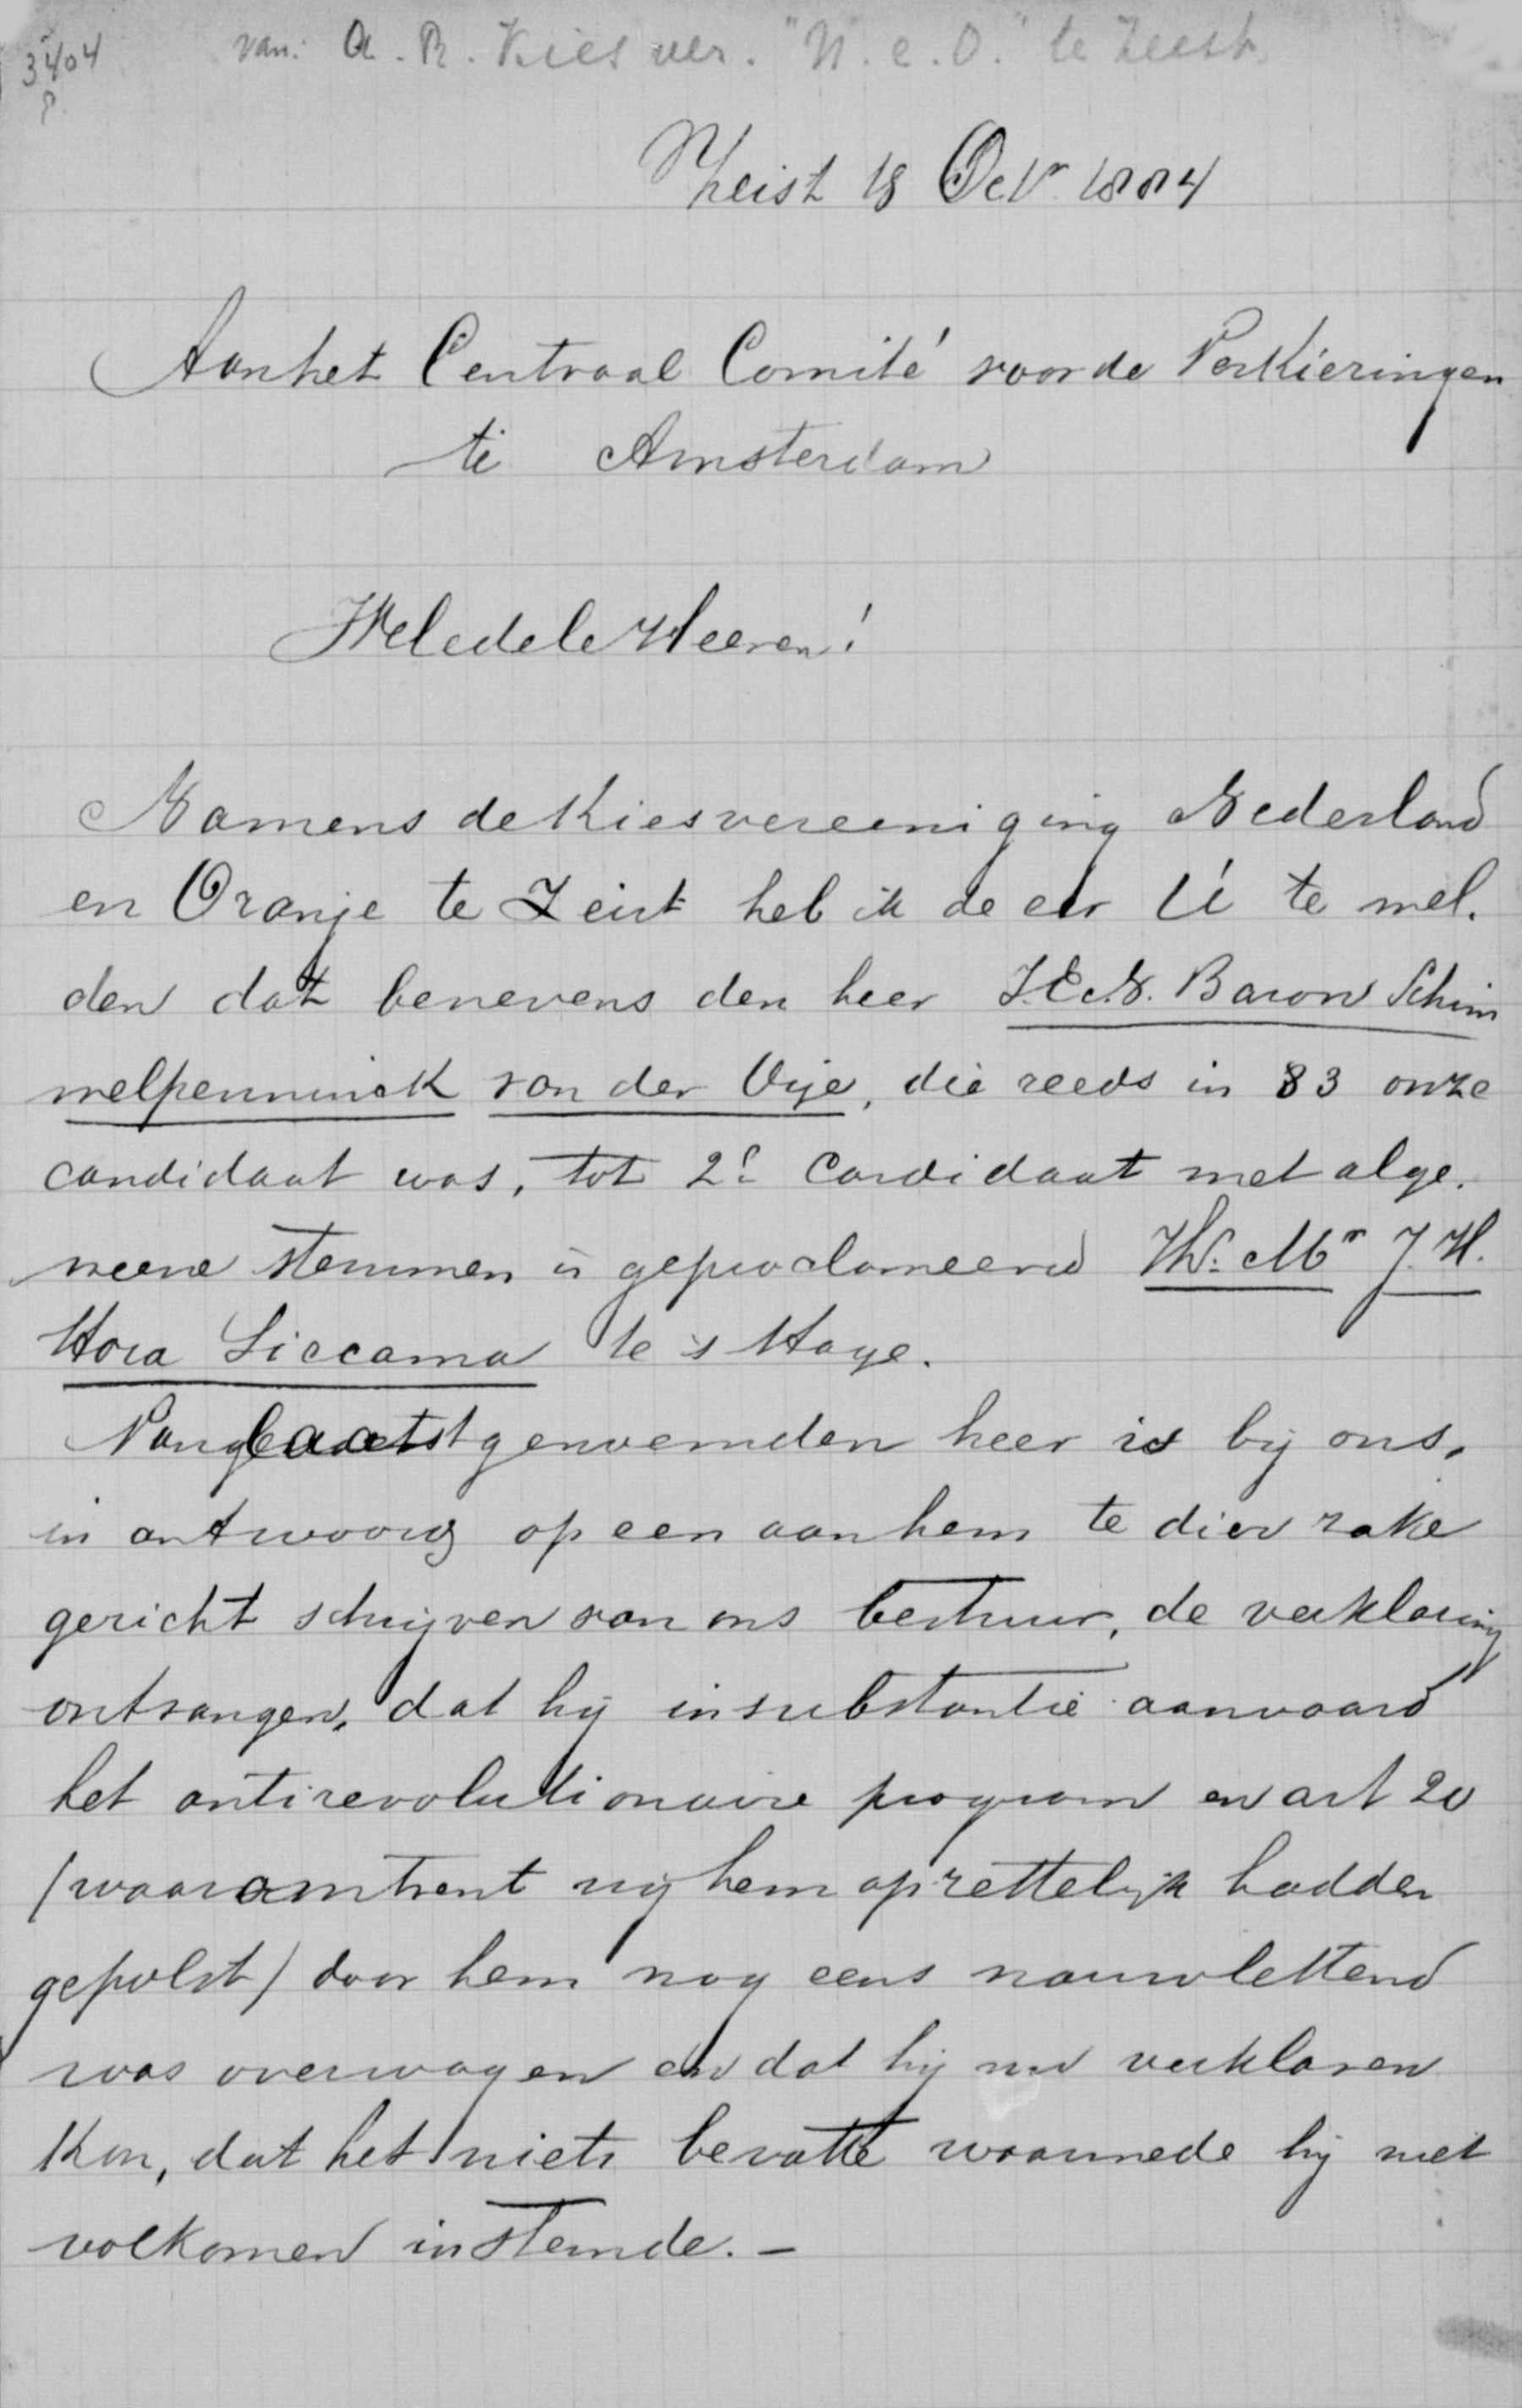 3404
van: A. R. Kiesver. "N. e. O." te Zeist.
Zheist 18 Octr. 1884
Aan het Centraal Comité voor de Verkieringen
te Amsterdam
Weledele Heeren!
Namens de Kiesvereeniging Nederland
en Oranje te Zeist heb ik de eer U te mel.
den dat benevens den heer Baron Schim
melpenninck van der Oije, die reeds in 83 onze
candidaat was, tot 2e Candidaat met alge.
meene stemmen is geproclameerd Mr J. H.
Hora Siccama te 's Hage.
Van laatstgenoemden heer is bij ons,
in antwoord op een aan hem te dier zake
gericht schrijven van ons bestuur, de verklaring
ontvangen, dat hij in substantie aanvaard
het antirevolutionaire program en art 20
(waaromtrent wij hem opzettelijk hadden
gepolst) door hem nog eens nauwlettend
was overwogen en dat hij nu verklaren
kon, dat het niets bevatte waarmede hij niet
volkomen instemde. –